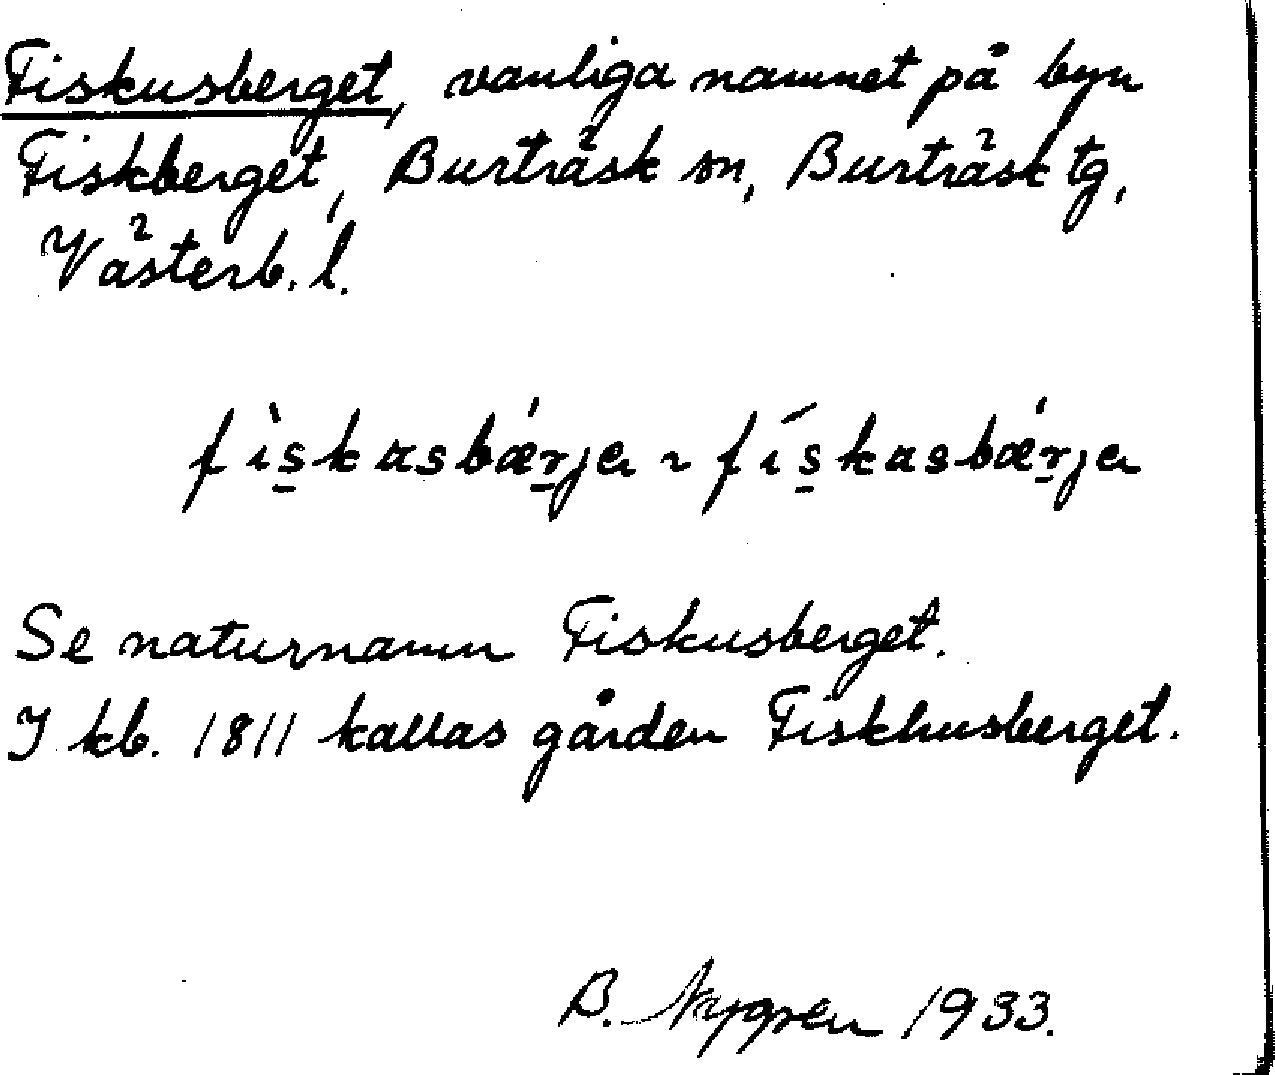 Fiskusberget, vanliga namnet på byn
Fiskberget, Burträsk sn, Burträsk tg,
Västerb. l.
fìskasbǽrja ~ fískasbǽrja
Se naturnamn Fiskusberget.
I kb. 1811 kallas gården Fiskhusberget.
B. Nygren 1933.